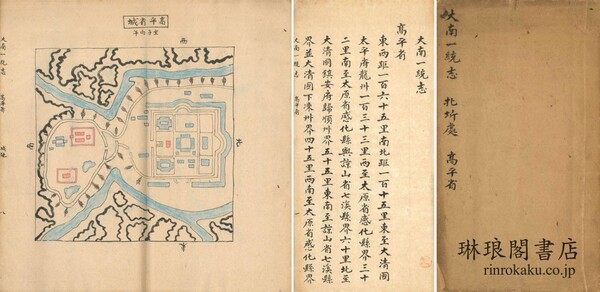 高平省城
西
北
大南一統志 高平省 城池 八
大南一統志
高平省
東西距一百六十五里南北距一百十五里東至大清國
太平府龍州一百三十三里西至太原省感化縣界三十
二里南至太原省感化縣與諒山省七溪縣界六十里北至
大清國鎮安府歸順州界五十五里東南至諒山省七溪縣
界並大清國下凍州界四十五里西南至太原省感化縣界
大南一統志 高平省 一
大南一統志 北圻處 高平省
琳琅閣書店
rinrokaku.co.jp